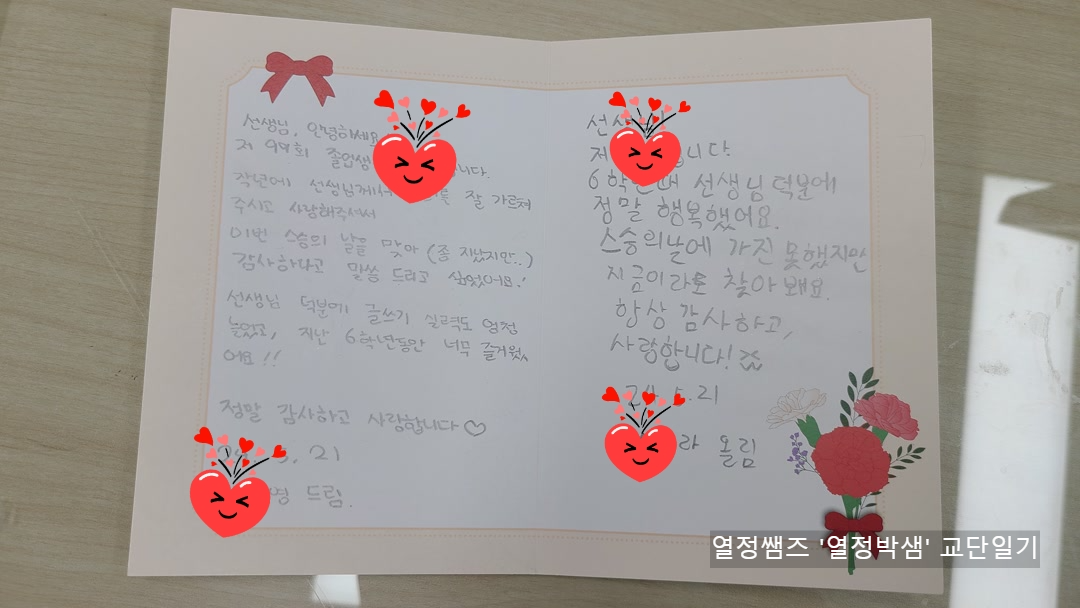 선생님, 안녕하세요
저 99회 졸업생 니다.
작년에 선생님께서 잘 가르쳐
주시고 사랑해주셔서
이번 스승의 날을 맞아 (좀 지났지만..)
감사하다고 말씀 드리고 싶었어요!
선생님 덕분에 글쓰기 실력도 엄청
늘었고, 지난 6학년동안 너무 즐거웠
어요!!
정말 감사하고 사랑합니다♡
21
영 드림.
선생
저 니다.
6학년때 선생님 덕분에
정말 행복했어요.
스승의날에 가진 못했지만
지금이라도 찾아봬요.
항상 감사하고,
사랑합니다!
24.5.21
라 올림
열정쌤즈 '열정박샘' 교단일기